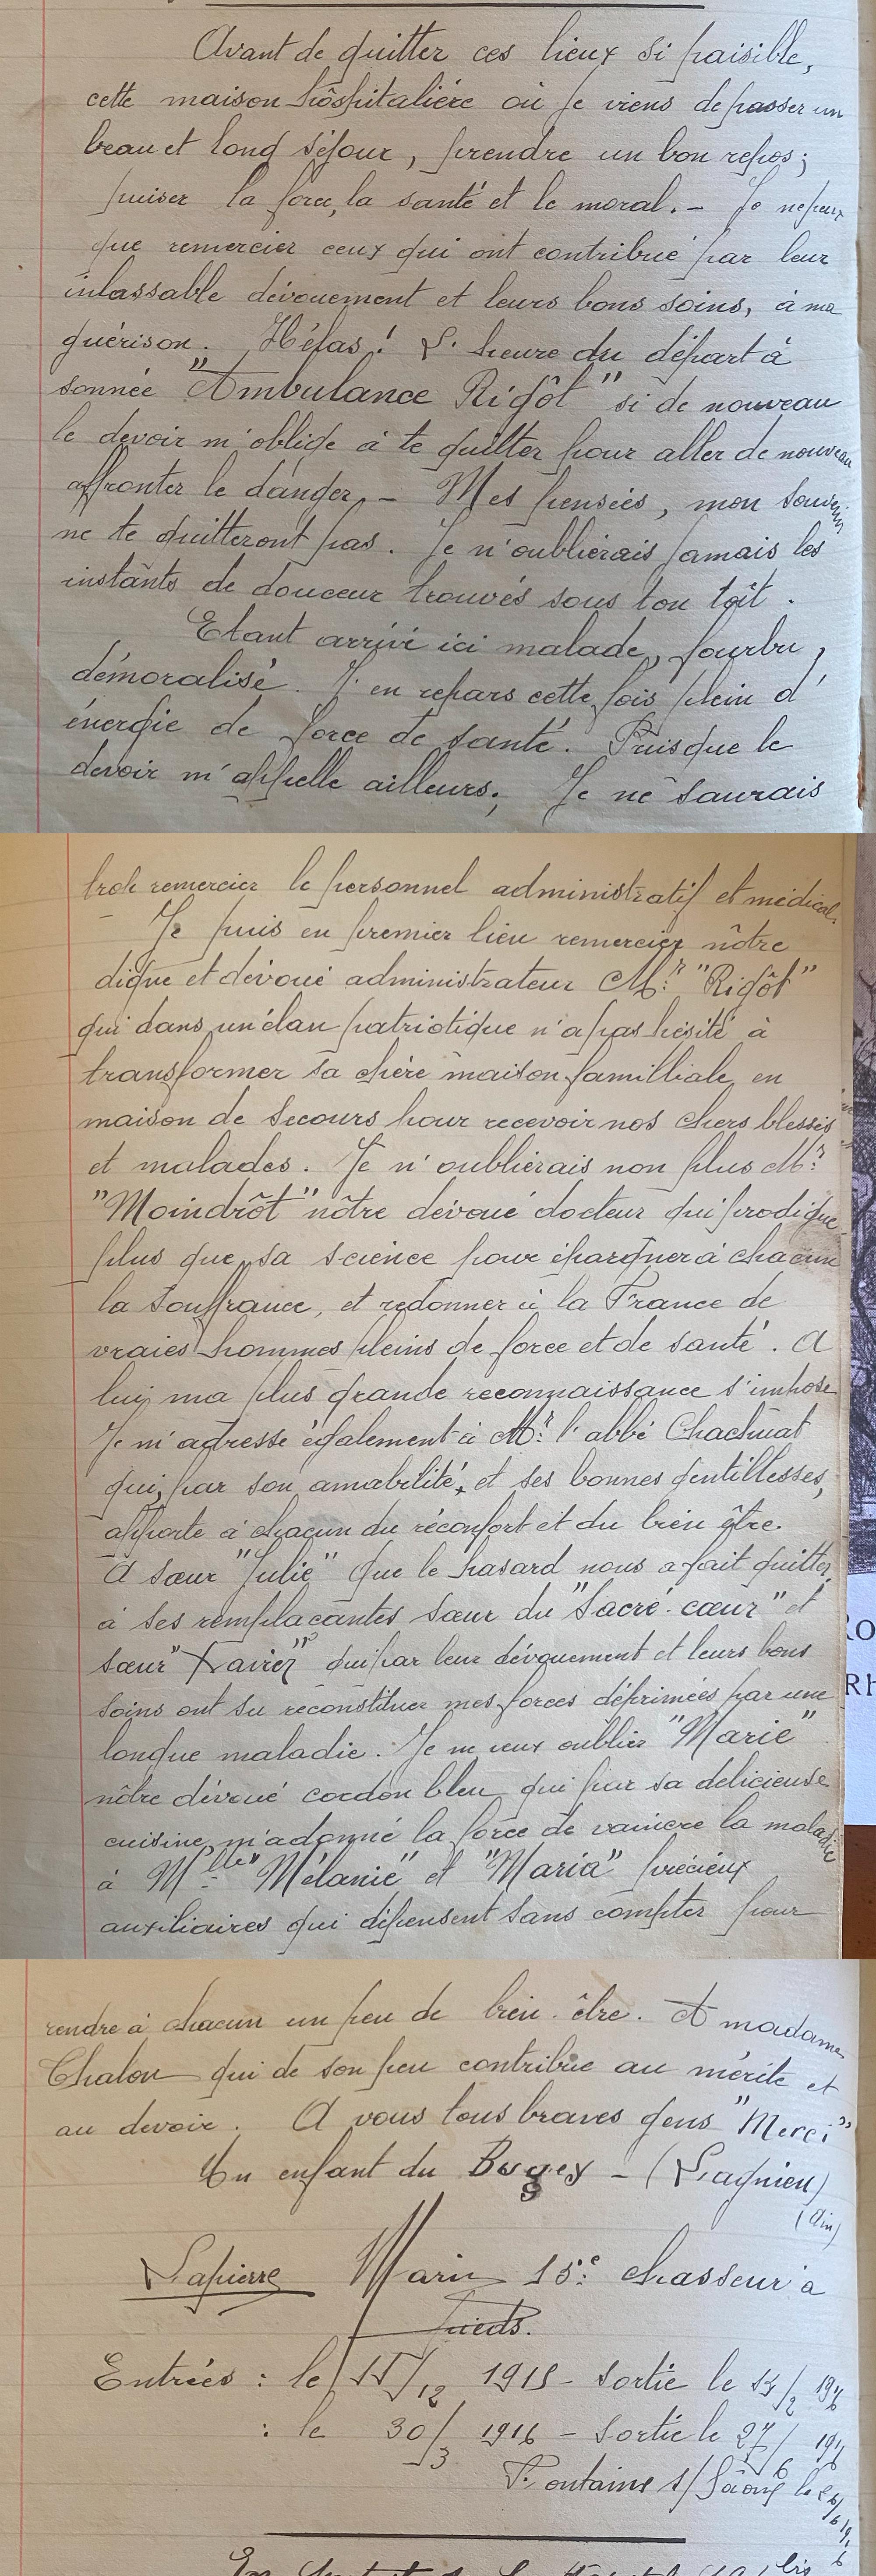 Avant de quitter ces lieux si paisible,
cette maison hôspitalière où je viens de passer un
beau et long séjour, prendre un bon repos;
puiser la force, la santé et le moral. - Je ne peux
que remercier ceux qui ont contribué par leur
inlassable dévouement et leurs bons soins, à ma
guérison. Hélas! L'heure du départ à
sonnée "Ambulance Rigôt" si de nouveau
le devoir m'oblige à te quitter pour aller de nouveau
affronter le danger, - Mes pensées, mon souvenir
ne te quitteront pas. Je n'oublierais jamais les
instants de douceur trouvés sous ton toît.
Etant arrivé ici malade, fourbu,
démoralisé. J'en repars cette fois plein d'
énergie de force de santé. Puisque le
devoir m'appelle ailleurs; Je ne saurais
trop remercier le personnel administratif et médical.
- Je puis en premier lieu remercier nôtre
digne et dévoué administrateur Mr "Rigôt"
qui dans un élan patriotique n'a pas hésité à
transformer sa chère maison familliale en
maison de secours pour recevoir nos chers blessés
et malades. Je n'oublierais non plus Mr
"Moindrôt" nôtre dévoué docteur qui prodigue
plus que sa science pour épargner à chacun
la souffrance, et redonner à la France de
vraies hommes pleins de force et de santé. A
lui ma plus grande reconnaissance s'impose
Je m'adresse également à Mr l'abbé
qui, par son amabilité, et ses bonnes gentillesses,
apporte à chacun du réconfort et du bien être.
A sœur "Julie" que le hasard nous a fait quitter,
à ses remplaçantes sœur du "Sacré-cœur" et
sœur "Xavier" qui par leur dévouement et leurs bons
soins ont su reconstituer mes forces déprimées par une
longue maladie. Je ne veux oublier "Marie"
nôtre dévoué cordon bleu qui par sa delicieuse
cuisine m'a donné la force de vaincre la maladie
à Mlle "Mélanie" et "Maria" précieux
auxiliaires qui dépensent sans compter pour
rendre à chacun un peu de bien-être. A madame
Chalon qui de son peu contribue au mérite et
au devoir. A vous tous braves gens "Merci"
Un enfant du Bugey - (Lagnieu)
(Ain)
Lapierre Marin 15e chasseur à
pieds.
Entrées : le 15/12 1915 - Sortie le /2 1916
: le 30/3 1916 - Sortie le 27/6 1916
Fontaine s/ Saône le